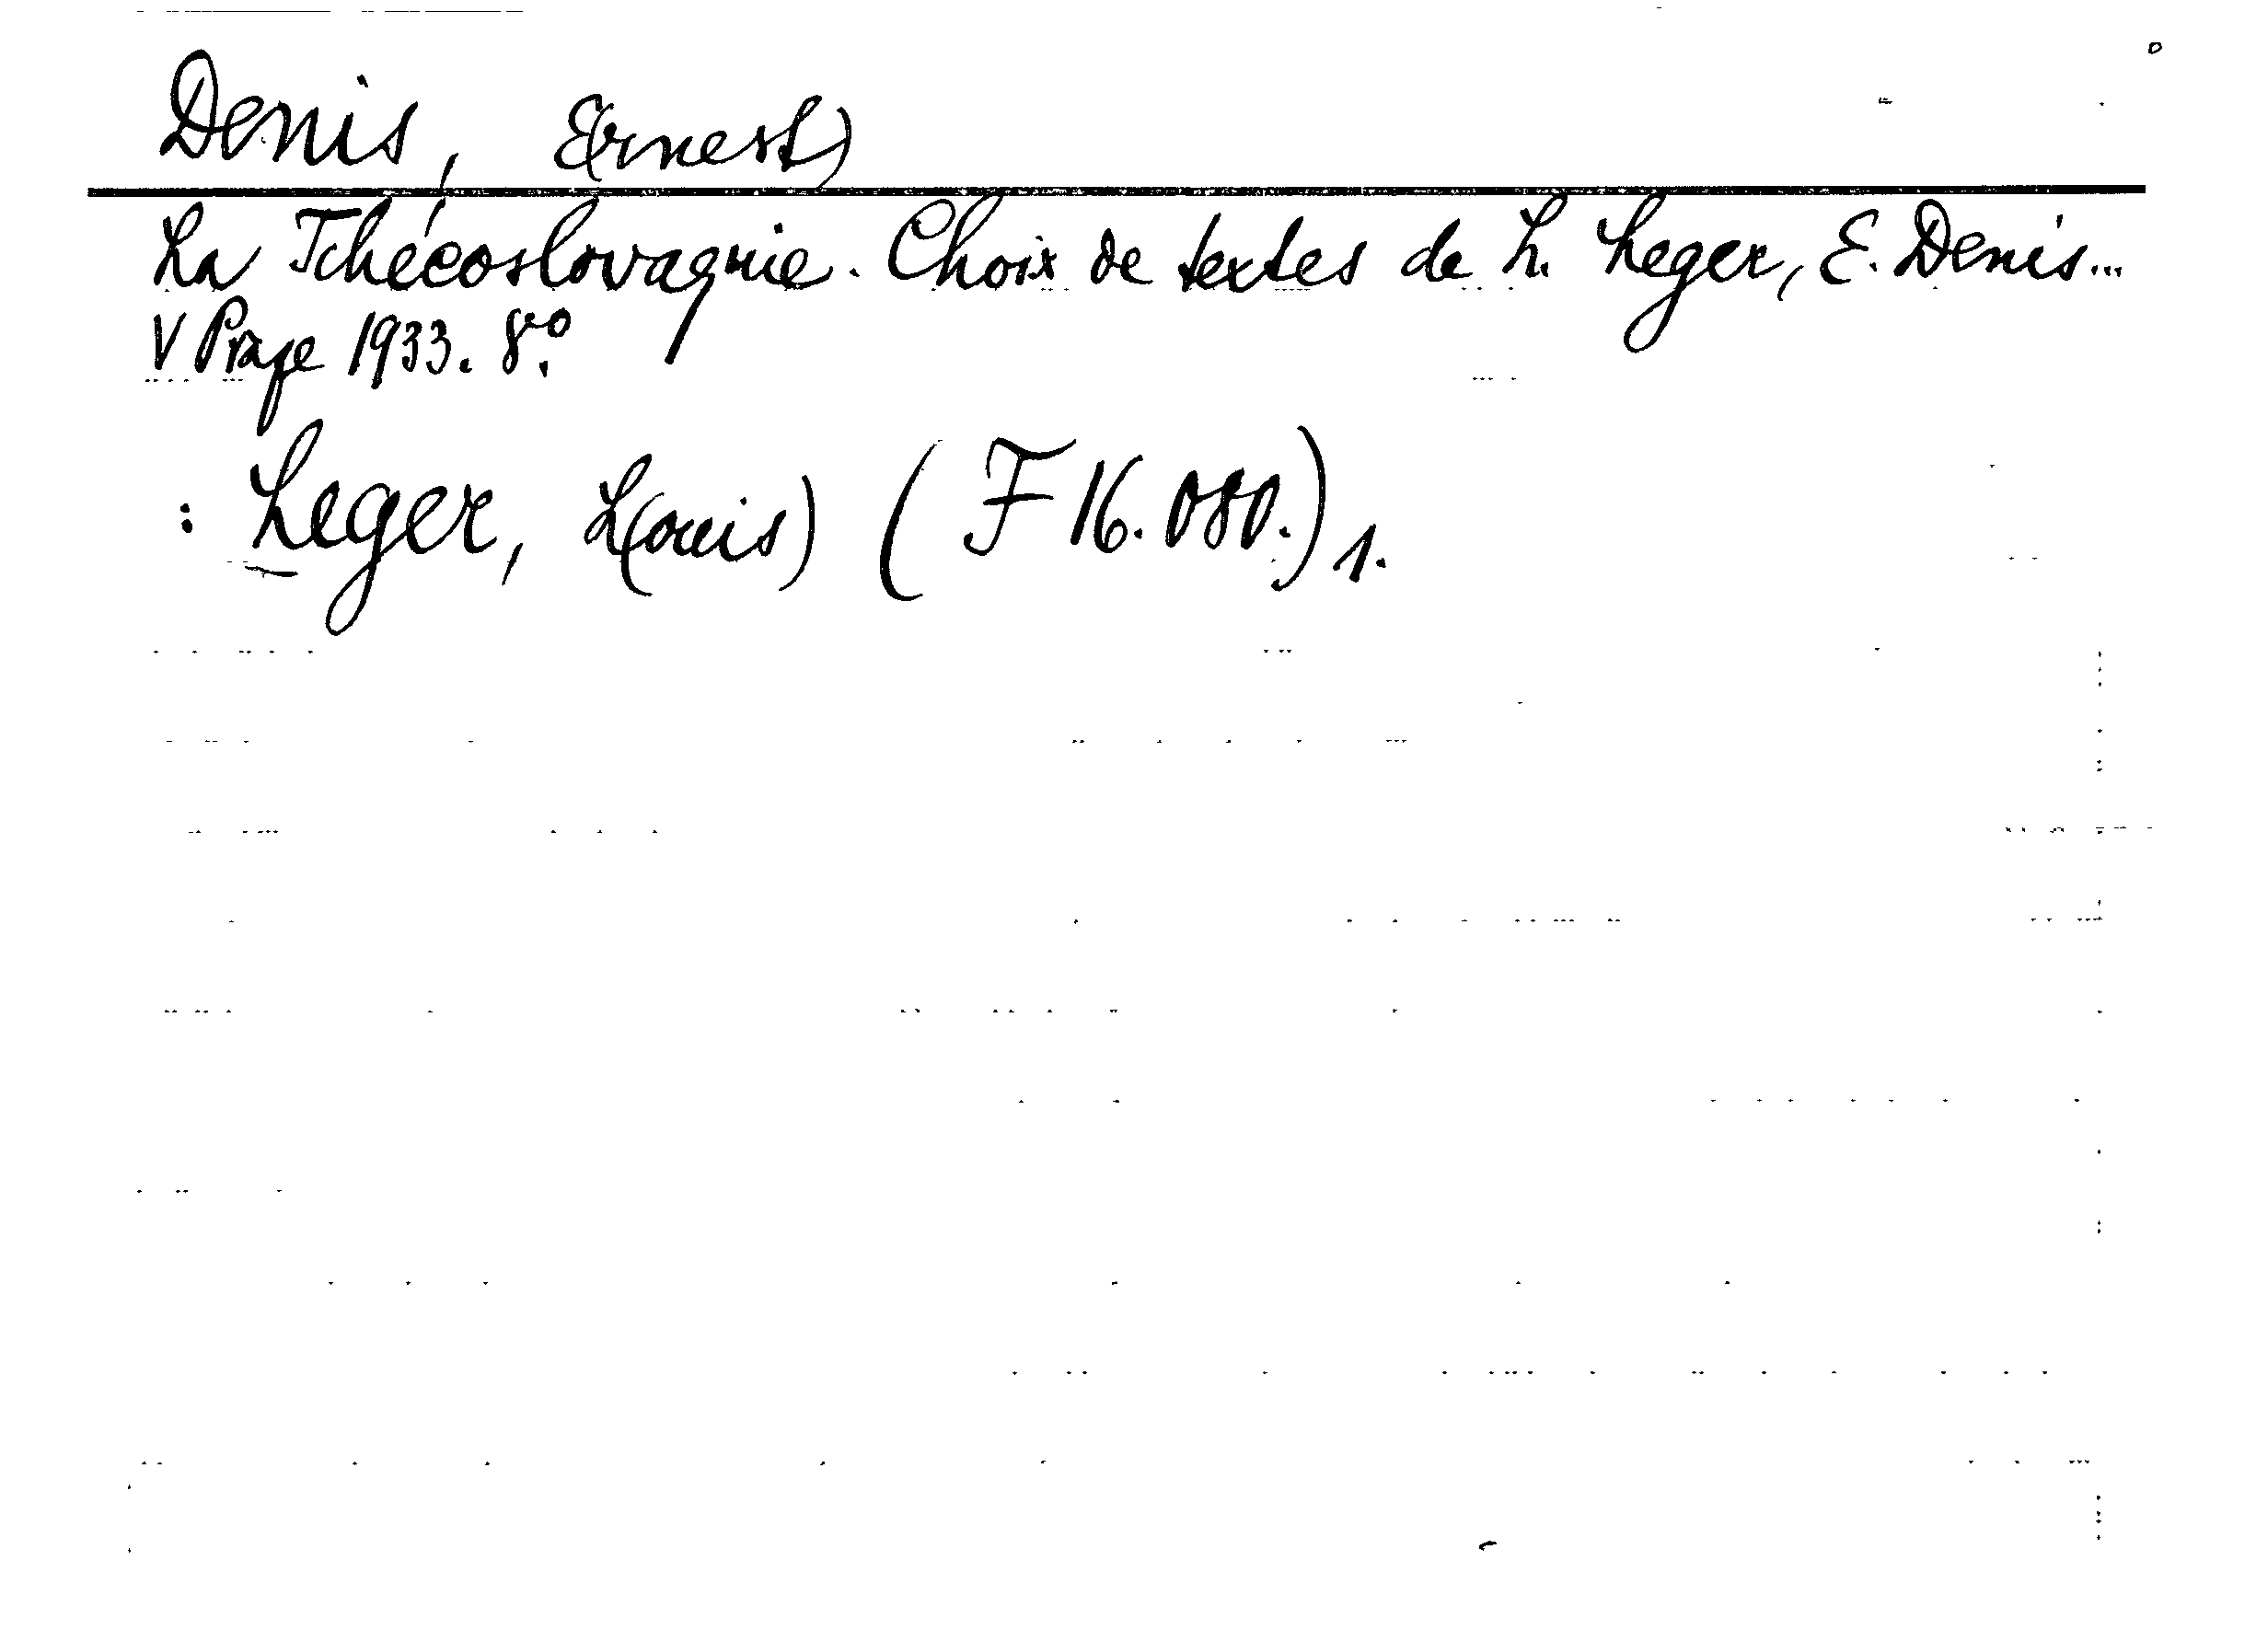 Denis, E(rnest)
La Tchécoslovaquie. Choix de textes de L. Leger, E. Denis...
V Praze 1933. 8°.
: Leger, L(ouis) (F 16.080.) 1.